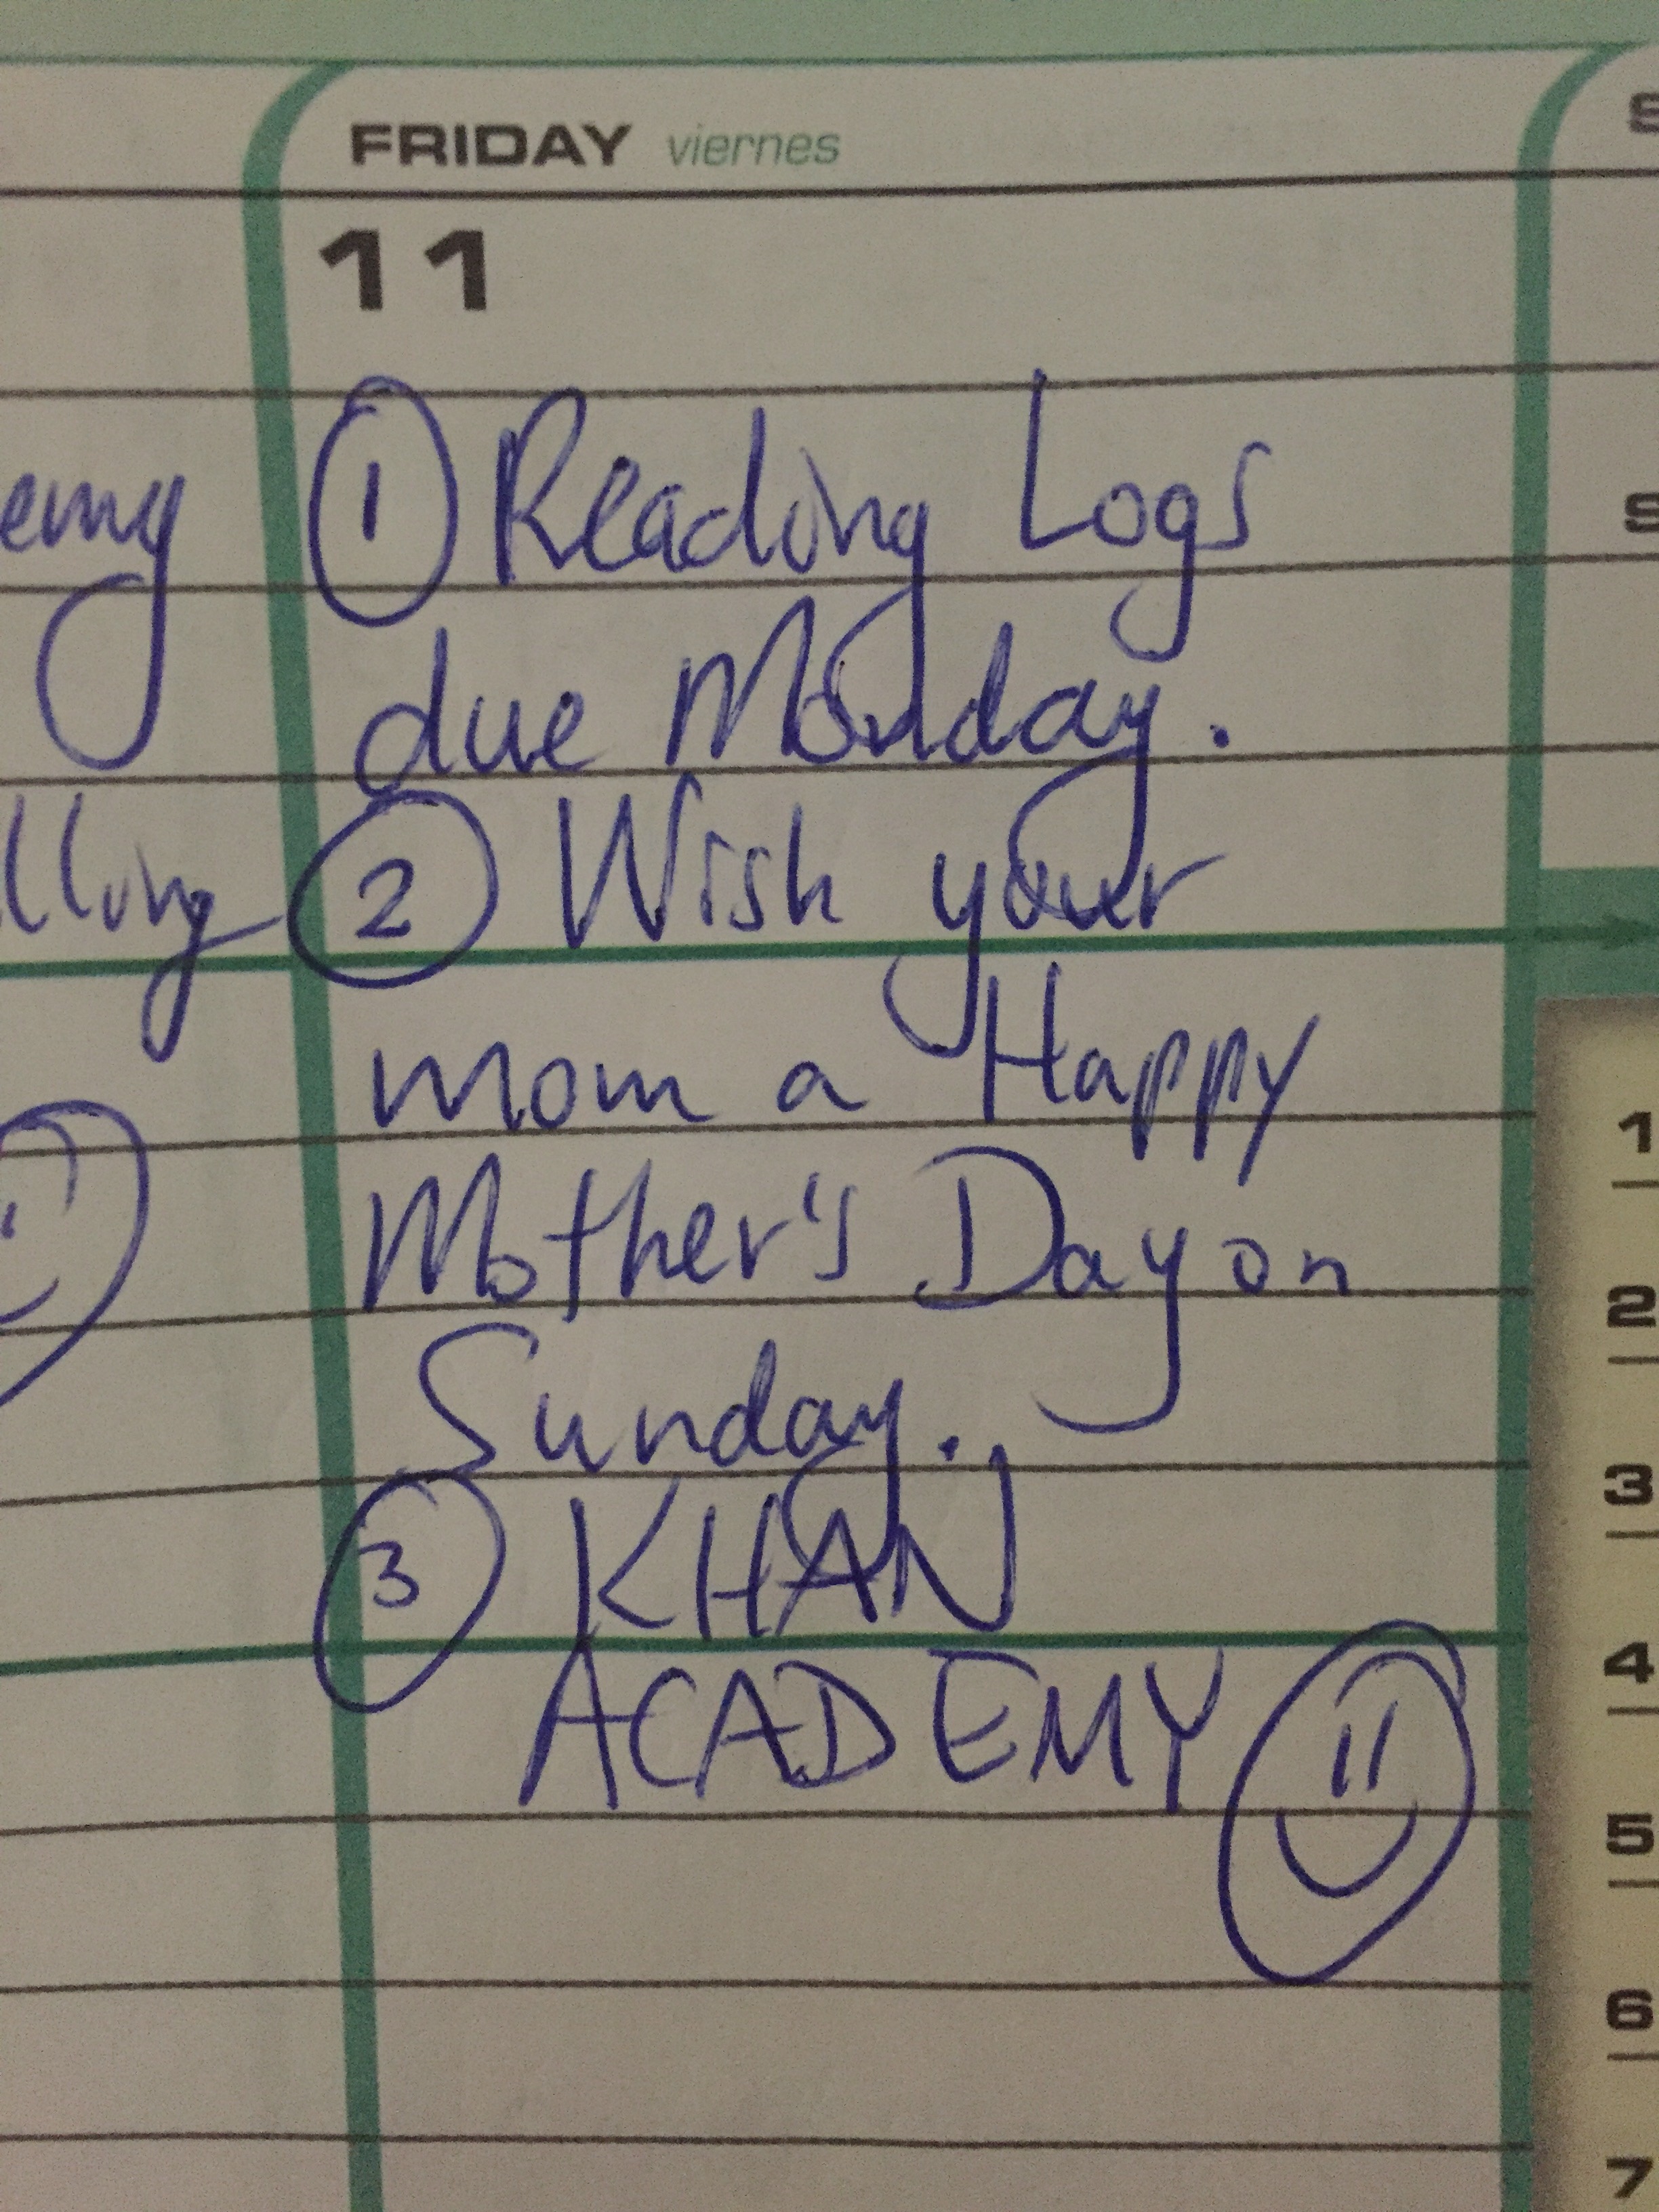 FRIDAY viernes
11
① Reading Logs
due Monday.
② Wish your
mom a Happy
Mother's Day on
Sunday.
③ KHAN
ACADEMY
emy
lling
S
S
1
2
3
4
5
6
7